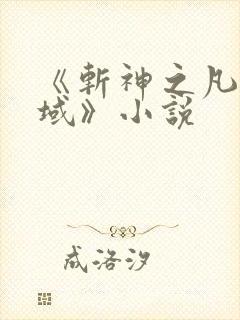 《斬神之凡
域》小説
成洛汐